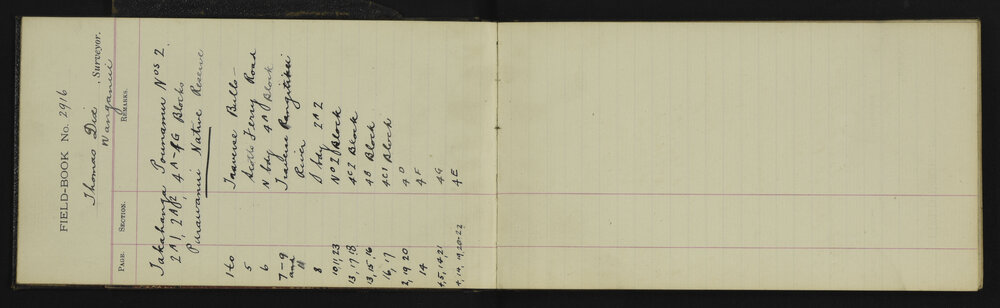 FIELD-BOOK No. 2916
Thomas Dix, Surveyor.
Wanganui
PAGE. SECTION. REMARKS.
Takahanga Pounamu Nos 2
2A1, 2A2, 4A-4G Blocks
Native Reserve
1 to Traverse Bulls-
5 Scotts Ferry Road
6 N bdy 4A Block
7-9 Traverse Rangitikei
and River
8 bdy 2A2
10, 11, 23 No 2 Block
13, 17, 18 4C2 Block
13, 15, 16 4B Block
16, 17 4C1 Block
2, 19, 20 4D
14 4F
4, 5, 14, 21 4G
4, 14, 19, 20-22 4E